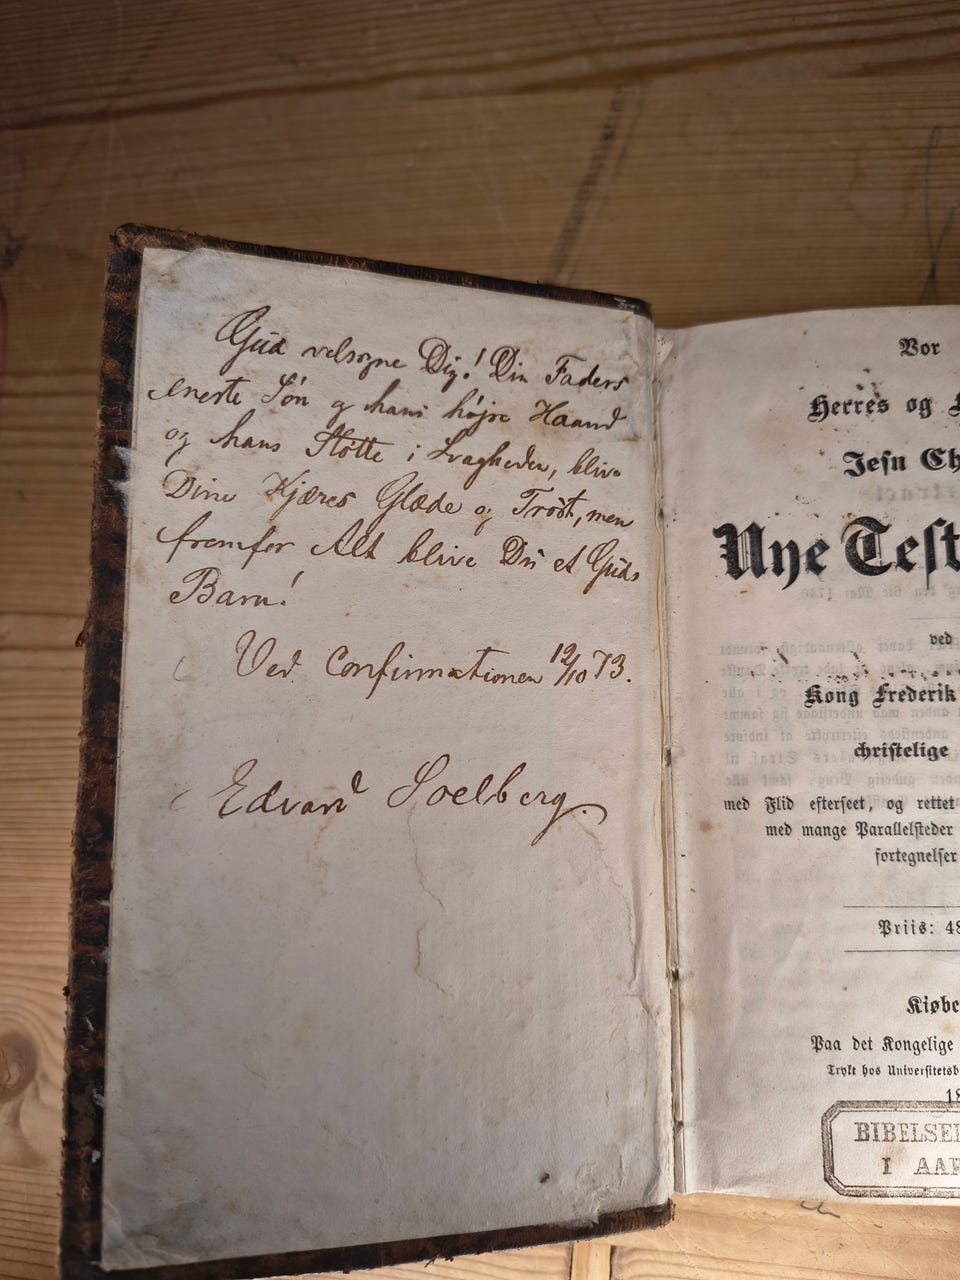 Gud velsigne Dig! Din Faders
eneste Søn og hans højre Haand
og hans Støtte i Svagheden, blive
Dine Kjæres Glæde og Trøst, men
fremfor Alt blive Du et Guds
Barn!
Ved Confirmationen 12/10 73.
Edvard Soelberg.
Vor
Herres og
Jesu Ch
Nye Test
ved
Kong Frederik
christelige
med Flid efterseet, og rettet
med mange Parallelsteder
fortegnelser
Priis: 48
Kiøbe
Paa det Kongelige
Trykt hos Universitetsb
18
BIBELSEL
I AAR